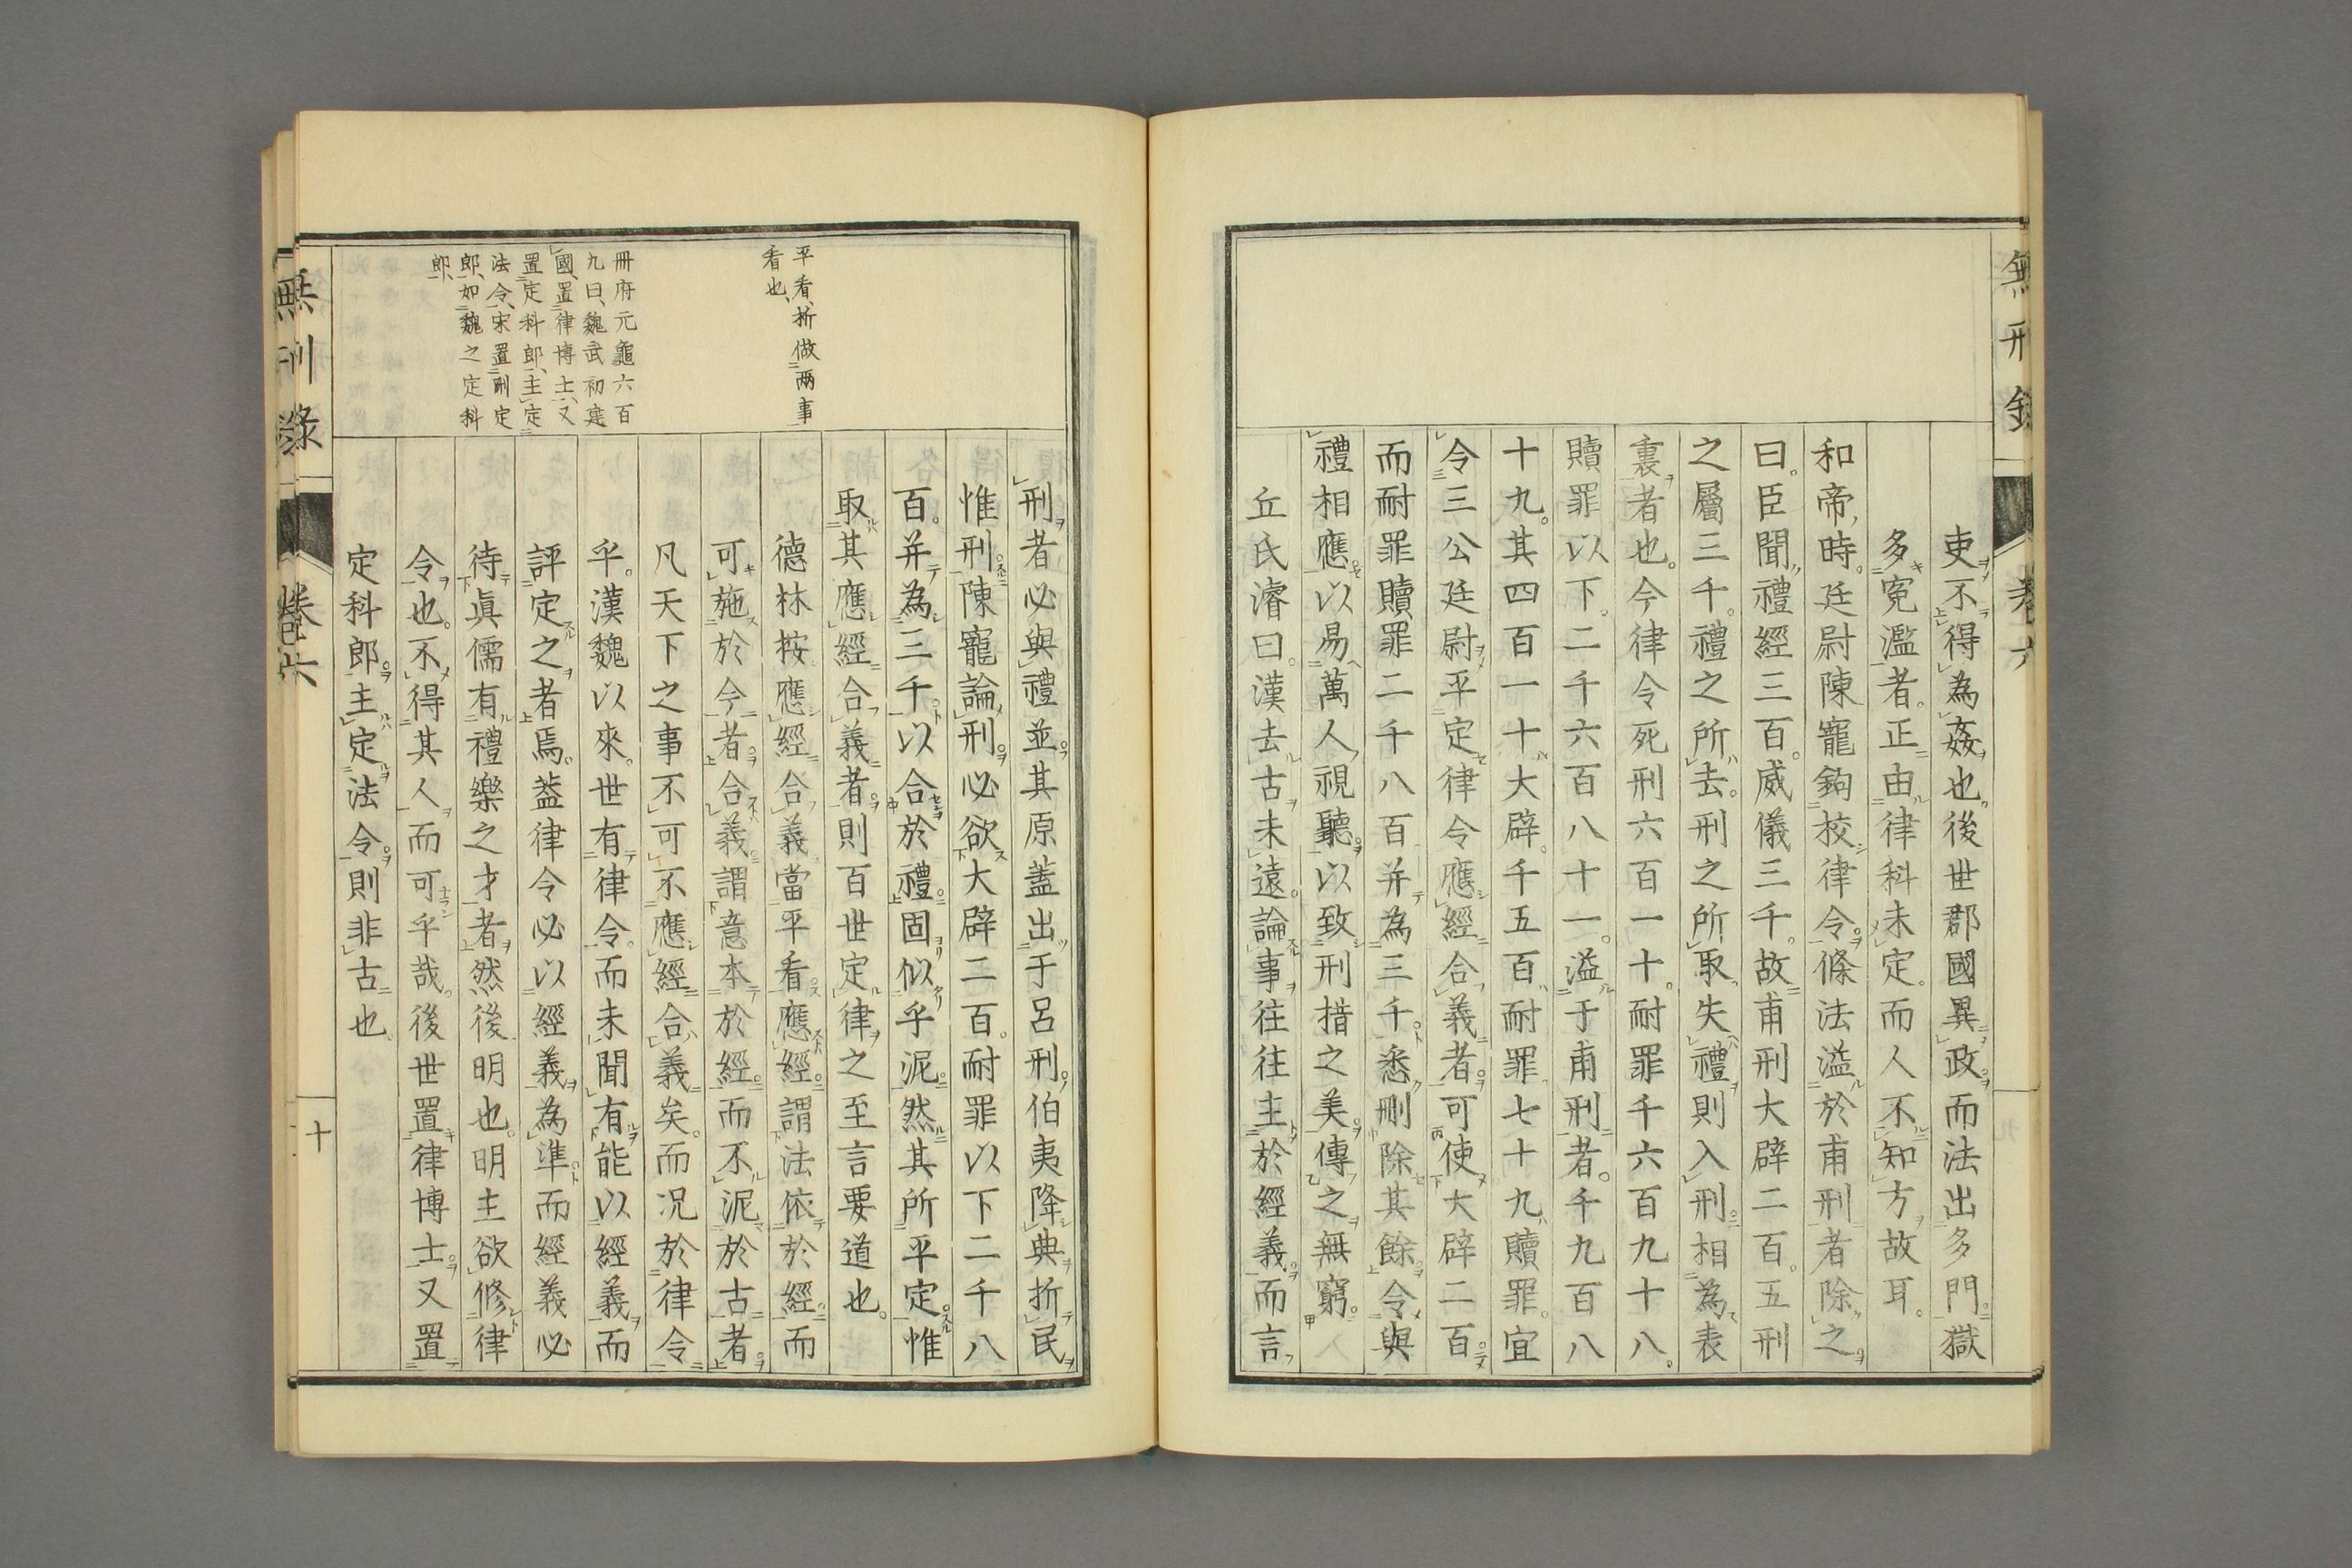 吏不得為姦也後世郡國異政而法出多門獄
多寃濫者正由律科未定而人不知方故耳
和帝時廷尉陳寵鉤校律令條法溢於甫刑者除之
曰臣聞禮經三百威儀三千故甫刑大辟二百五刑
之屬三千禮之所去刑之所取失禮則入刑相為表
裏者也今律令死刑六百一十耐罪千六百九十八
贖罪以下二千六百八十一溢于甫刑者千九百八
十九其四百一十大辟千五百耐罪七十九贖罪宜
令三公廷尉平定律令應經合義者可使大辟二百
而耐罪贖罪二千八百并為三千悉刪除其餘令與
禮相應以易萬人視聽以致刑措之美傳之無窮
丘氏濬曰漢去古未遠論事往往主於經義而言
刑者必與禮並其原蓋出于呂刑伯夷降典折民
惟刑陳寵論刑必欲大辟二百耐罪以下二千八
百并為三千以合於禮固似乎泥然其所平定惟
取其應經合義者則百世定律之至言要道也
德林按應經合義當平看應經謂法依於經而
可施於今者合義謂意本於經而不泥於古者
凡天下之事不可不應經合義矣而況於律令
乎漢魏以來世有律令而未聞有能以經義而
評定之者焉蓋律令必以經義為準而經義必
待眞儒有禮樂之才者然後明也明主欲修律
令也不得其人而可乎哉後世置律博士又置
定科郎主定法令則非古也
平看、折做兩事
看也、
冊府元龜六百
九曰、魏武初建
國、置律博士、又
置定科郎、主定
法令、宋置刪定
郎、如魏之定科
郎、
無刑錄
卷六
無刑錄
卷六
十